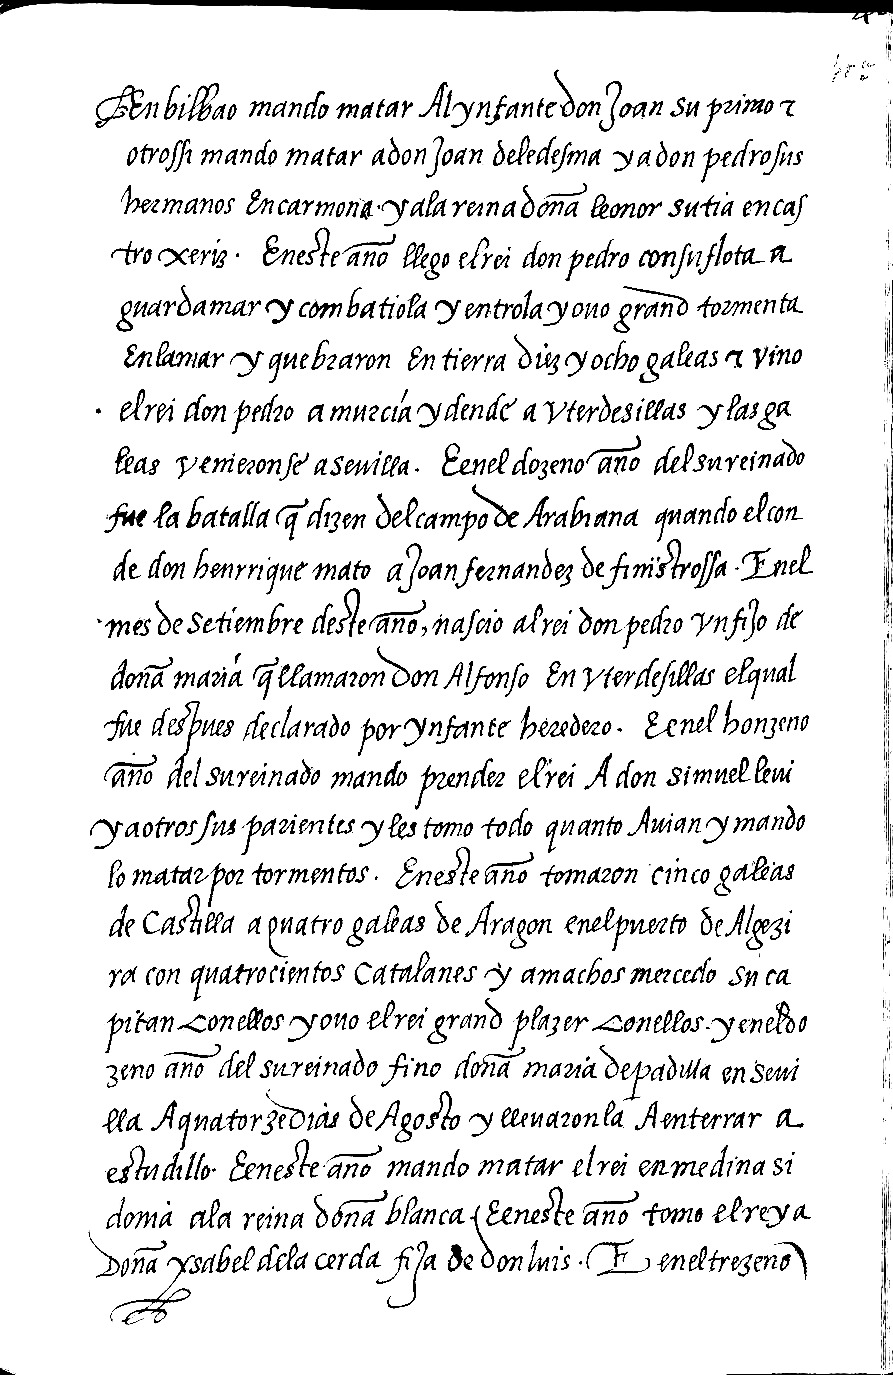 En bilbao mando matar Al ynfante don Joan su primo τ
otrossi mando matar a don Joan de ledesma y a don pedro sus
hermanos En carmona · y ala reina doña leonor su tia en cas
tro xeriz · En este año llego el rei don pedro con su flota a
guardamar y combatiola y entrola y ouo grand tormenta
En la mar y quebraron En tierra diez y ocho galeas τ vino
el rei don pedro a murcia y dende a vterdesillas y las ga
leas venieronse a seuilla · E en el dozeno año del su reinado
fue la batalla q̃ dizen del campo de Arabiana quando el con
de don henrrique mato a Joan fernandez de finistrossa · En el
mes de setiembre deste año, nascio al rei don pedro vn fijo de
doña maria q̃ llamaron don Alfonso En vterdesillas el qual
fue despues declarado por ynfante heredero · E en el honzeno
año del su reinado mando prender el rei A don simuel leui
y a otros sus parientes y les tomo todo quanto Auian y mando
lo matar por tormentos · En este año tomaron cinco galeas
de Castilla a quatro galeas de Aragon en el puerto de Algezi
ra con quatrocientos Catalanes y a machos mercedo su ca
pitan con ellos y ouo el rei grand plazer con ellos · y en el do
zeno año del su reinado fino doña maria de padilla en seui
lla A quatorze dias de Agosto y lleuaron la A enterrar a
estudillo · E en este año mando matar el rei en medina si
donia ala reina doña blanca · E en este año tomo el rey a
Doña ysabel dela cerda fija de don luis · E en el trezeno